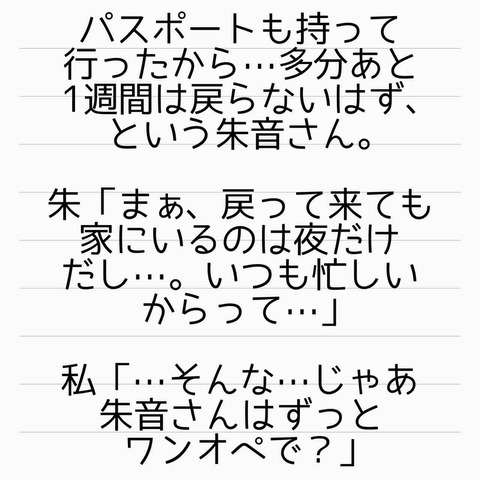 パスポートも持って
行ったから…多分あと
1週間は戻らないはず、
という朱音さん。
朱「まぁ、戻って来ても
家にいるのは夜だけ
だし…。いつも忙しい
からって…」
私「…そんな…じゃあ
朱音さんはずっと
ワンオペで？」